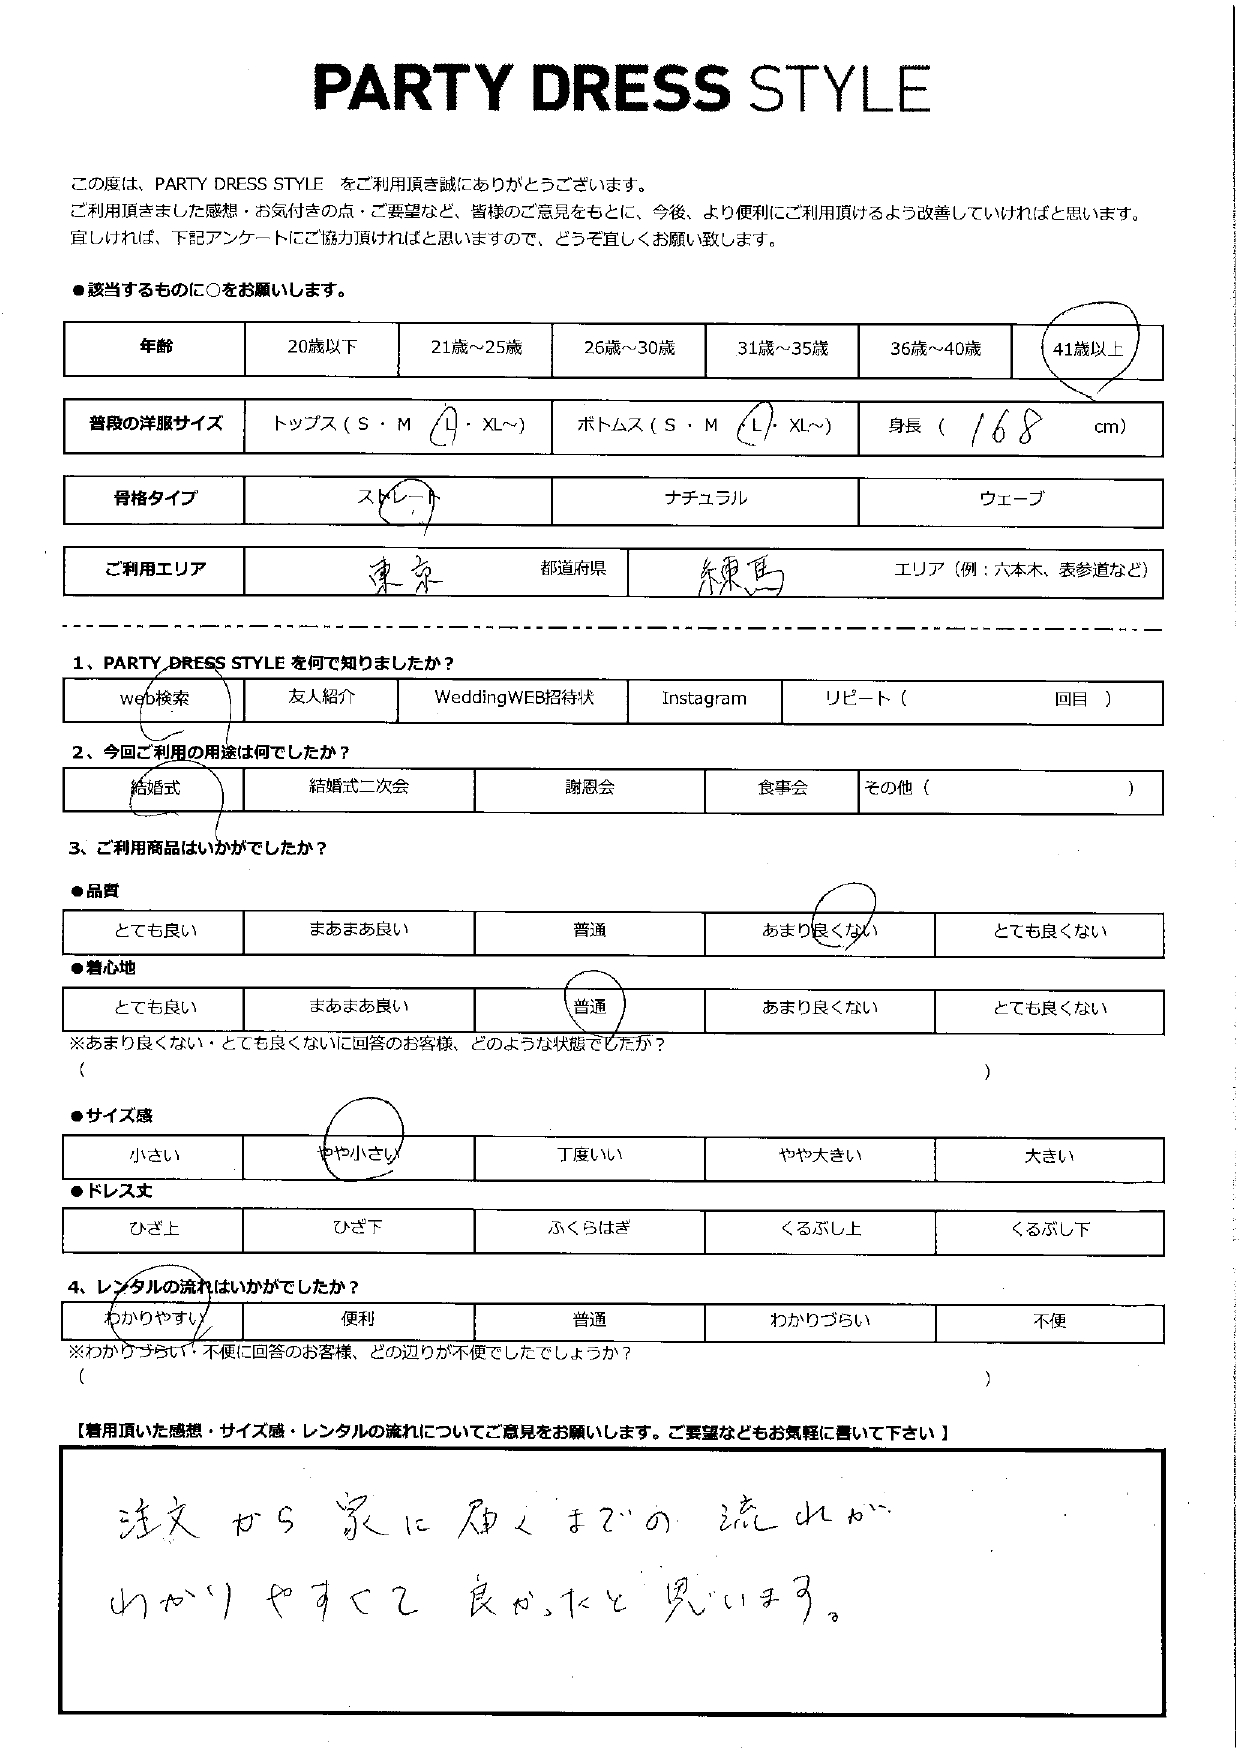 PARTY DRESS STYLE
この度は、PARTY DRESS STYLE　をご利用頂き誠にありがとうございます。
ご利用頂きました感想・お気付きの点・ご要望など、皆様のご意見をもとに、今後、より便利にご利用頂けるよう改善していければと思います。
宜しければ、下記アンケートにご協力頂ければと思いますので、どうぞ宜しくお願い致します。
●該当するものに○をお願いします。
年齢 20歳以下 21歳～25歳 26歳～30歳 31歳～35歳 36歳～40歳 41歳以上
普段の洋服サイズ トップス ( S ・ M ・ L ・ XL～) ボトムス ( S ・ M ・ L ・ XL～) 身長 ( 168 cm)
骨格タイプ ストレート ナチュラル ウェーブ
ご利用エリア 東京 都道府県 練馬 エリア（例：六本木、表参道など）
1、PARTY DRESS STYLE を何で知りましたか？
web検索 友人紹介 WeddingWEB招待状 Instagram リピート（ 回目 ）
2、今回ご利用の用途は何でしたか？
結婚式 結婚式二次会 謝恩会 食事会 その他（ ）
3、ご利用商品はいかがでしたか？
●品質
とても良い まあまあ良い 普通 あまり良くない とても良くない
●着心地
とても良い まあまあ良い 普通 あまり良くない とても良くない
※あまり良くない・とても良くないに回答のお客様、どのような状態でしたか？
（ ）
●サイズ感
小さい やや小さい 丁度いい やや大きい 大きい
●ドレス丈
ひざ上 ひざ下 ふくらはぎ くるぶし上 くるぶし下
4、レンタルの流れはいかがでしたか？
わかりやすい 便利 普通 わかりづらい 不便
※わかりづらい・不便に回答のお客様、どの辺りが不便でしたでしょうか？
（ ）
【着用頂いた感想・サイズ感・レンタルの流れについてご意見をお願いします。ご要望などもお気軽に書いて下さい 】
注文から家に届くまでの流れが
わかりやすくて良かったと思います。